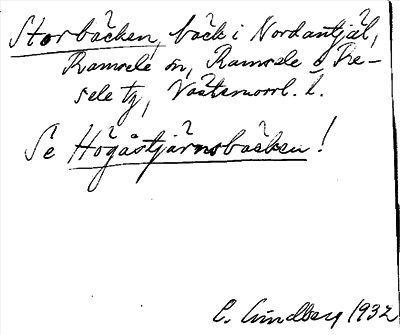 Storbäcken, bäck i Nordantjäl,
Ramsele sn, Ramsele o Re-
sele tg, Västernorrl. l.
Se Högåstjärnsbäcken!
C. Lundberg 1932